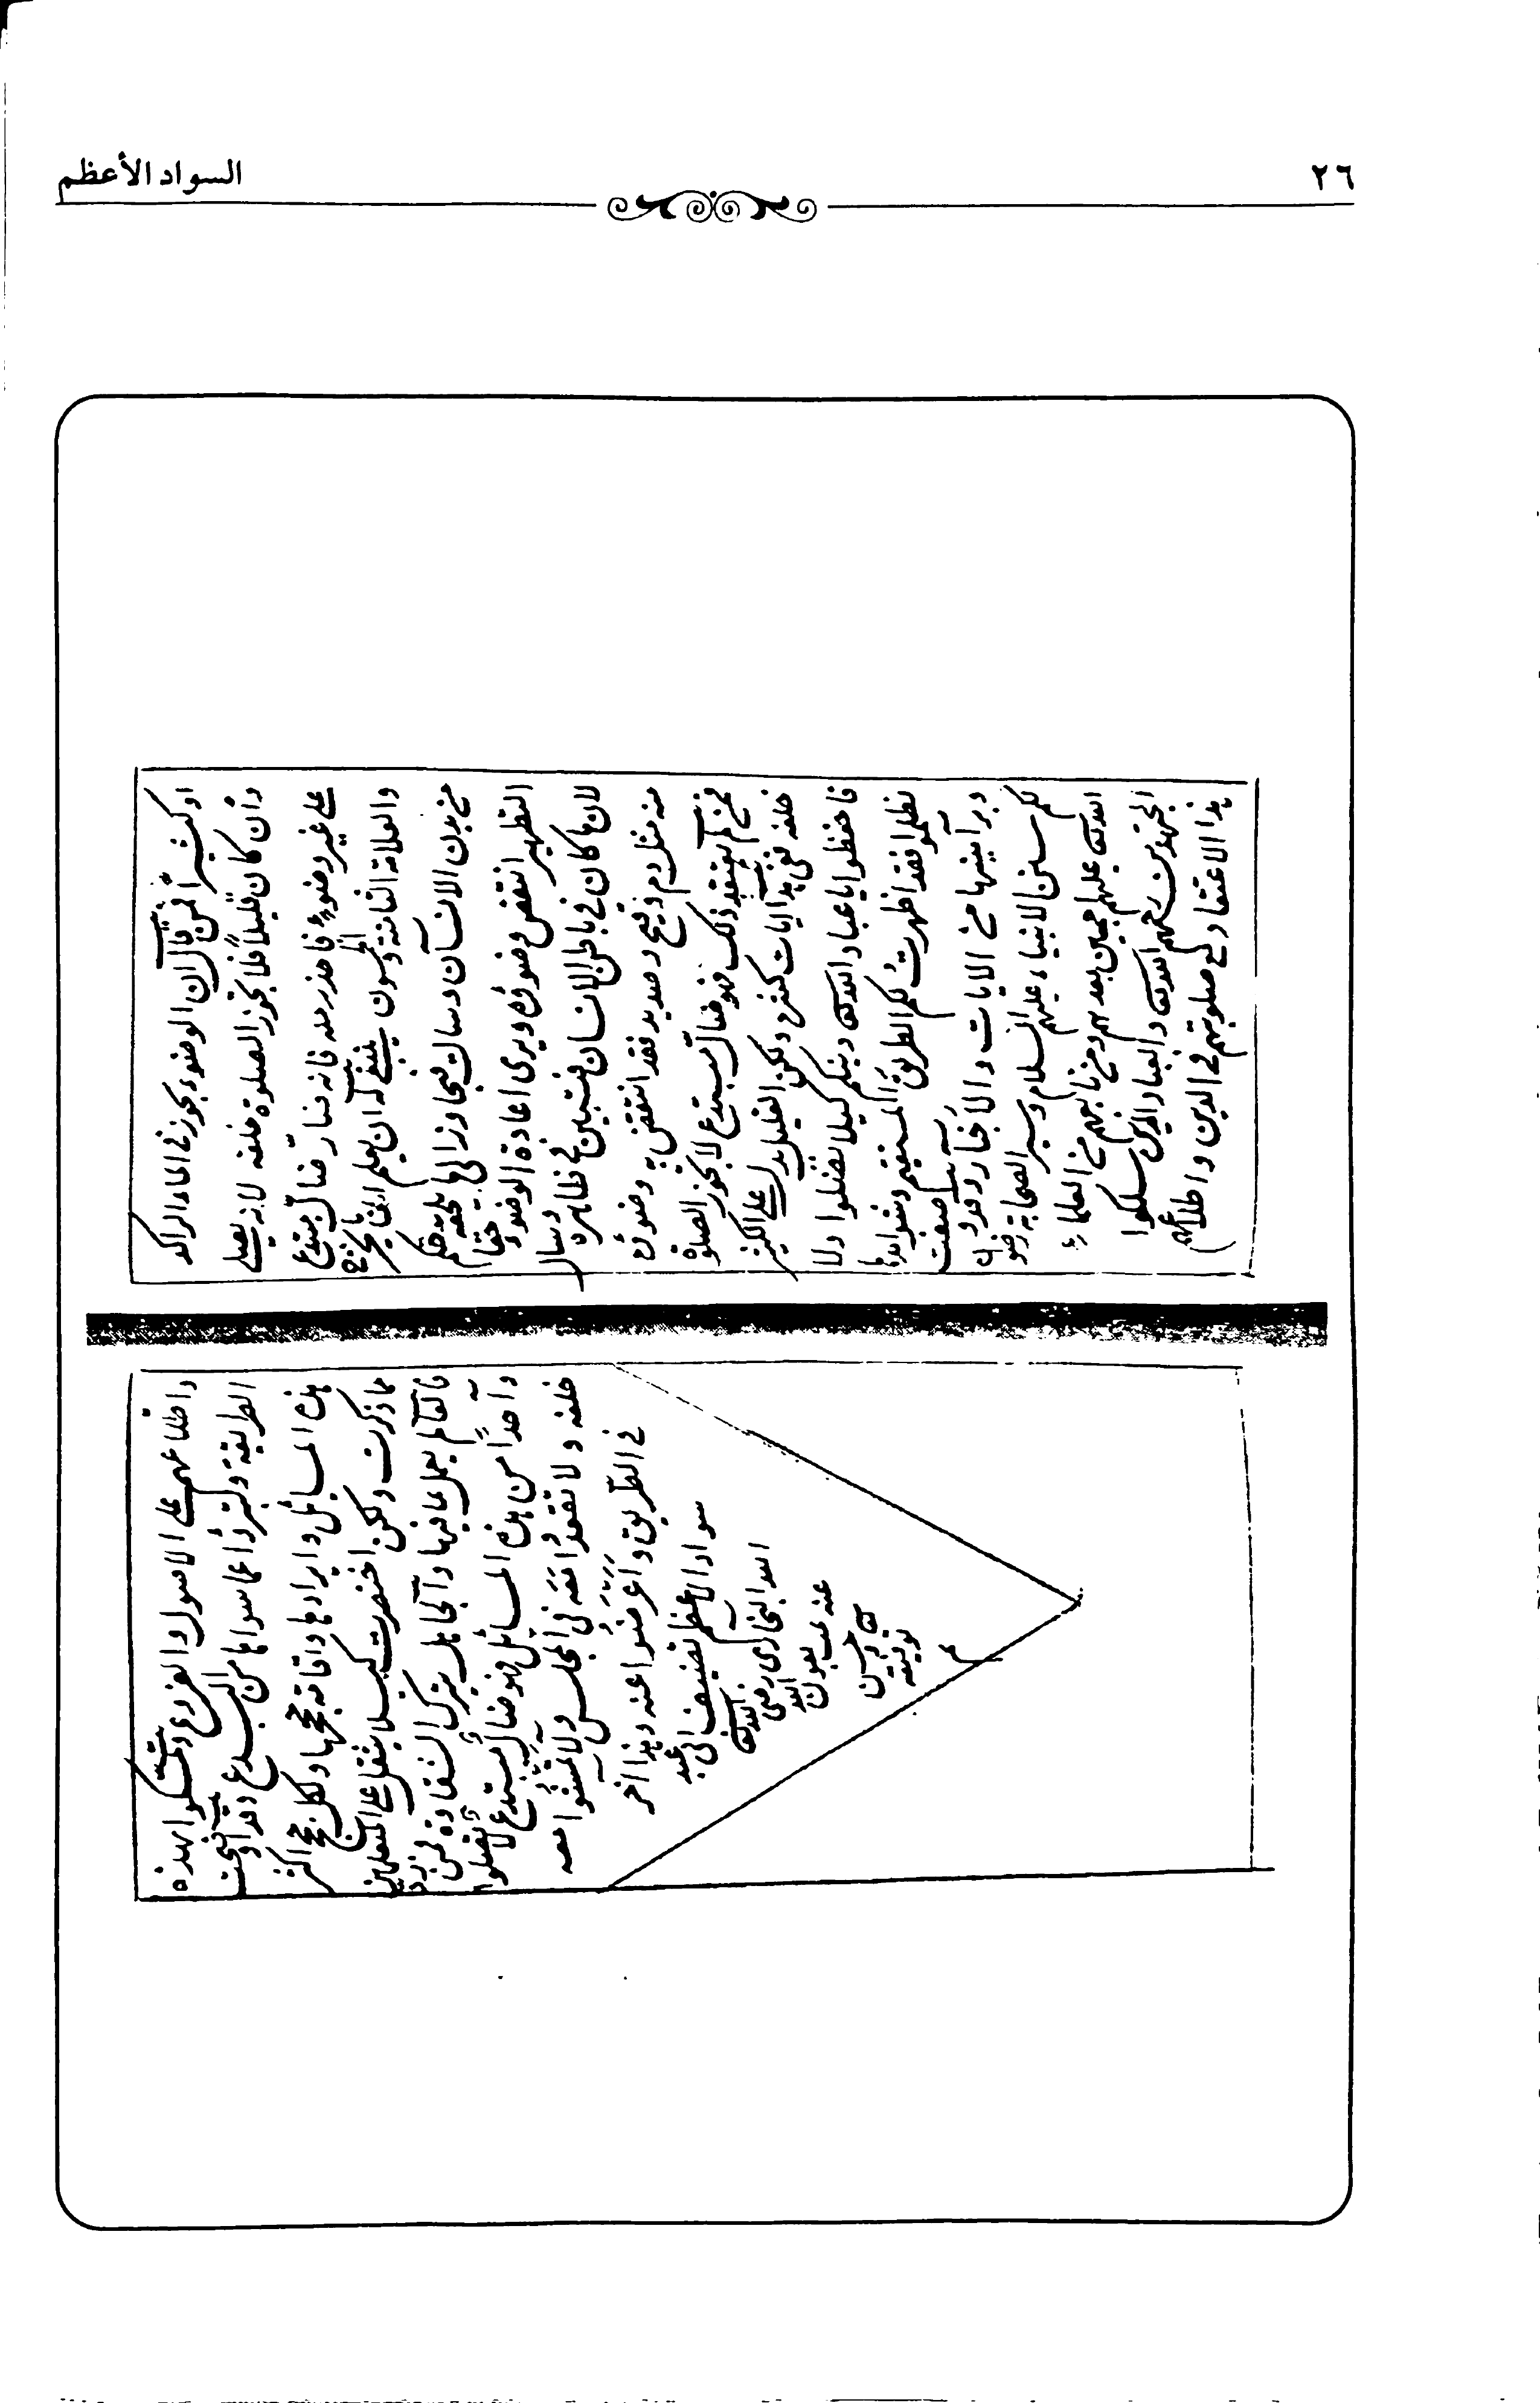 ٢٦
السواد الأعظم
او كثيرا فمن قال ان الوضوء يجوز في الماء الراكد
وأن كان قليلاً فلا تجوز الصلوة خلفه لانه يصلي
على غير وضوءٍ فاحذر منه فانه ضارّ ضالّ مبتدع
والعلامة الثامنة والخمسون ينبغي له ان يعلم انما يخرج
من بدن الانسان وسال فتجاوز الى ما يلحقه حكم
التطهير انتقض وضوؤه ويرى اعادة الوضوء حقا
لان ما كان في باطن الانسان فتبين في ظاهره وسال
منه مثل دم وقيح وصديد فقد انتقض به وضوئه
فمن لم يعتقد ذلك فهو ضال مبتدع لا تجوز الصلوة
خلفه ففي هذا ايات كثيرة ولكن القليل يدل على الكثير
فاحفظوا يا عباد الله دينكم كيلا تضلوا ولا
تظلموا فقد اظهرت لكم الطريق المستقيم وشواهدها
وبراهينها من الايات والاخبار وقد وصفت
لكم سنن الانبياء عليهم السلام وسير الصحابة رضوان
الله عليهم اجمعين بعدهم ومن تابعهم من العلماء
المجتهدين رحمهم الله والعباد الذين سلكوا
هذا الاعتقاد مع صلوتهم في الدين واطلاعهم
واطلاعهم على الاصول والفروع وتمسكوا بهذه
الطريقة وتبرؤا عما سواها من البدع وقد اوضحت
هذه المسايل وايرادها واقامة حججها ولكل حجج اكثر
مما ذكرت ولكن اختصرت كيلا يثقل على المتعلمين
فالعالم يعمل بما فيها والجاهل يترك الشقاوة فمن رد
واحدًا من هذه المسائل فهو ضال مبتدع لا تصلوا
خلفه ولا تقعدوا معه في المجلس ولا تمشوا معه
في الطريق واعرضوا عنه وهذا اخر
سواد الاعظم تصنيف ابي عبد
الله البخاري رضي الله
عنه تمت بعون الله
وحسن
توفيقه
م